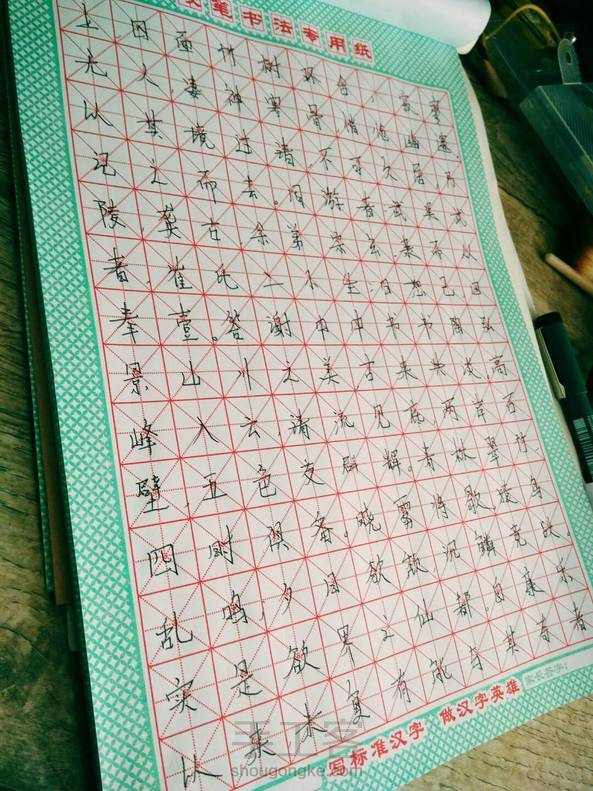 笔书法专用纸
上四面竹树环合,寂寥
无人凄神寒骨悄怆幽邃.
以其境过清,不可久居,乃
记之而去。同游者武吴武
陵龚古余弟宗玄隶而从
者崔氏二小生,曰恕己曰
奉壹。答谢中中书书陶弘
景山川之美古来共谈,高
峰入云清流见底两岸石
壁,五色交辟辉。青林翠竹.
四时俱备。晓雾将歇猿鸟
乱鸣,夕日欲颓沉鳞竞跃.
实是欲界之仙都,自康乐
以来未复有能与其奇者
写标准汉字 做汉字英雄
家长签字:
手工客
shougongke.com